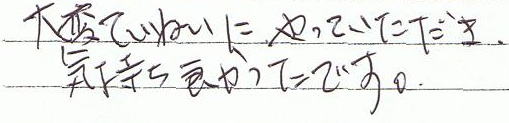 大変ていねいに、やっていただき、
気持ち良かったです。